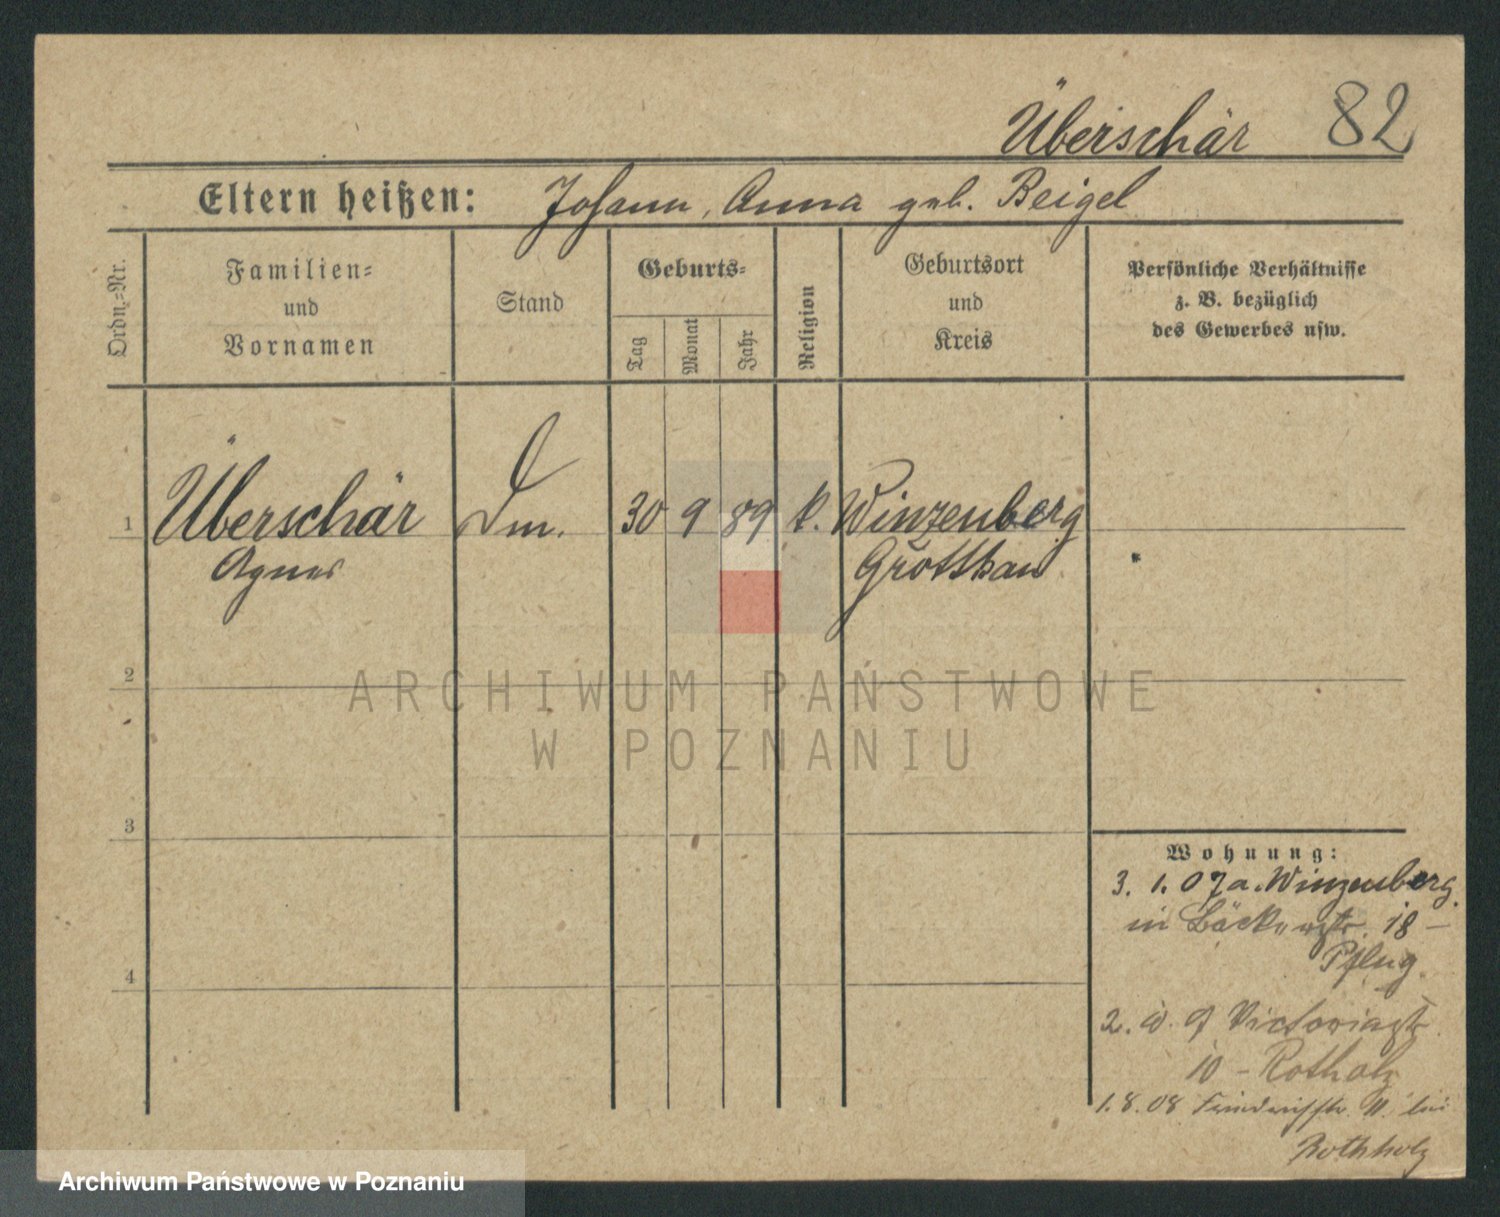 Überschär 82
Eltern heißen: Johann, Anna geb. Beigel
Ordn.-Nr.
Familien-
und
Vornamen
Stand
Geburts-
Tag
Monat
Jahr
Religion
Geburtsort
und
Kreis
Persönliche Verhältnisse
z. B. bezüglich
des Gewerbes usw.
1 Überschär Dm. 30 9 89 k. Winzenberg
Agnes Grottkau
2
ARCHIWUM PAŃSTWOWE
W POZNANIU
3
Wohnung:
3. 1. 07 a. Winzenberg
in Bäckerstr. 18 –
Pflug.
4
2. 10. 07 Victoriastr.
10 – Rotholz
1. 8. 08 11. bei
Rothholz
Archiwum Państwowe w Poznaniu